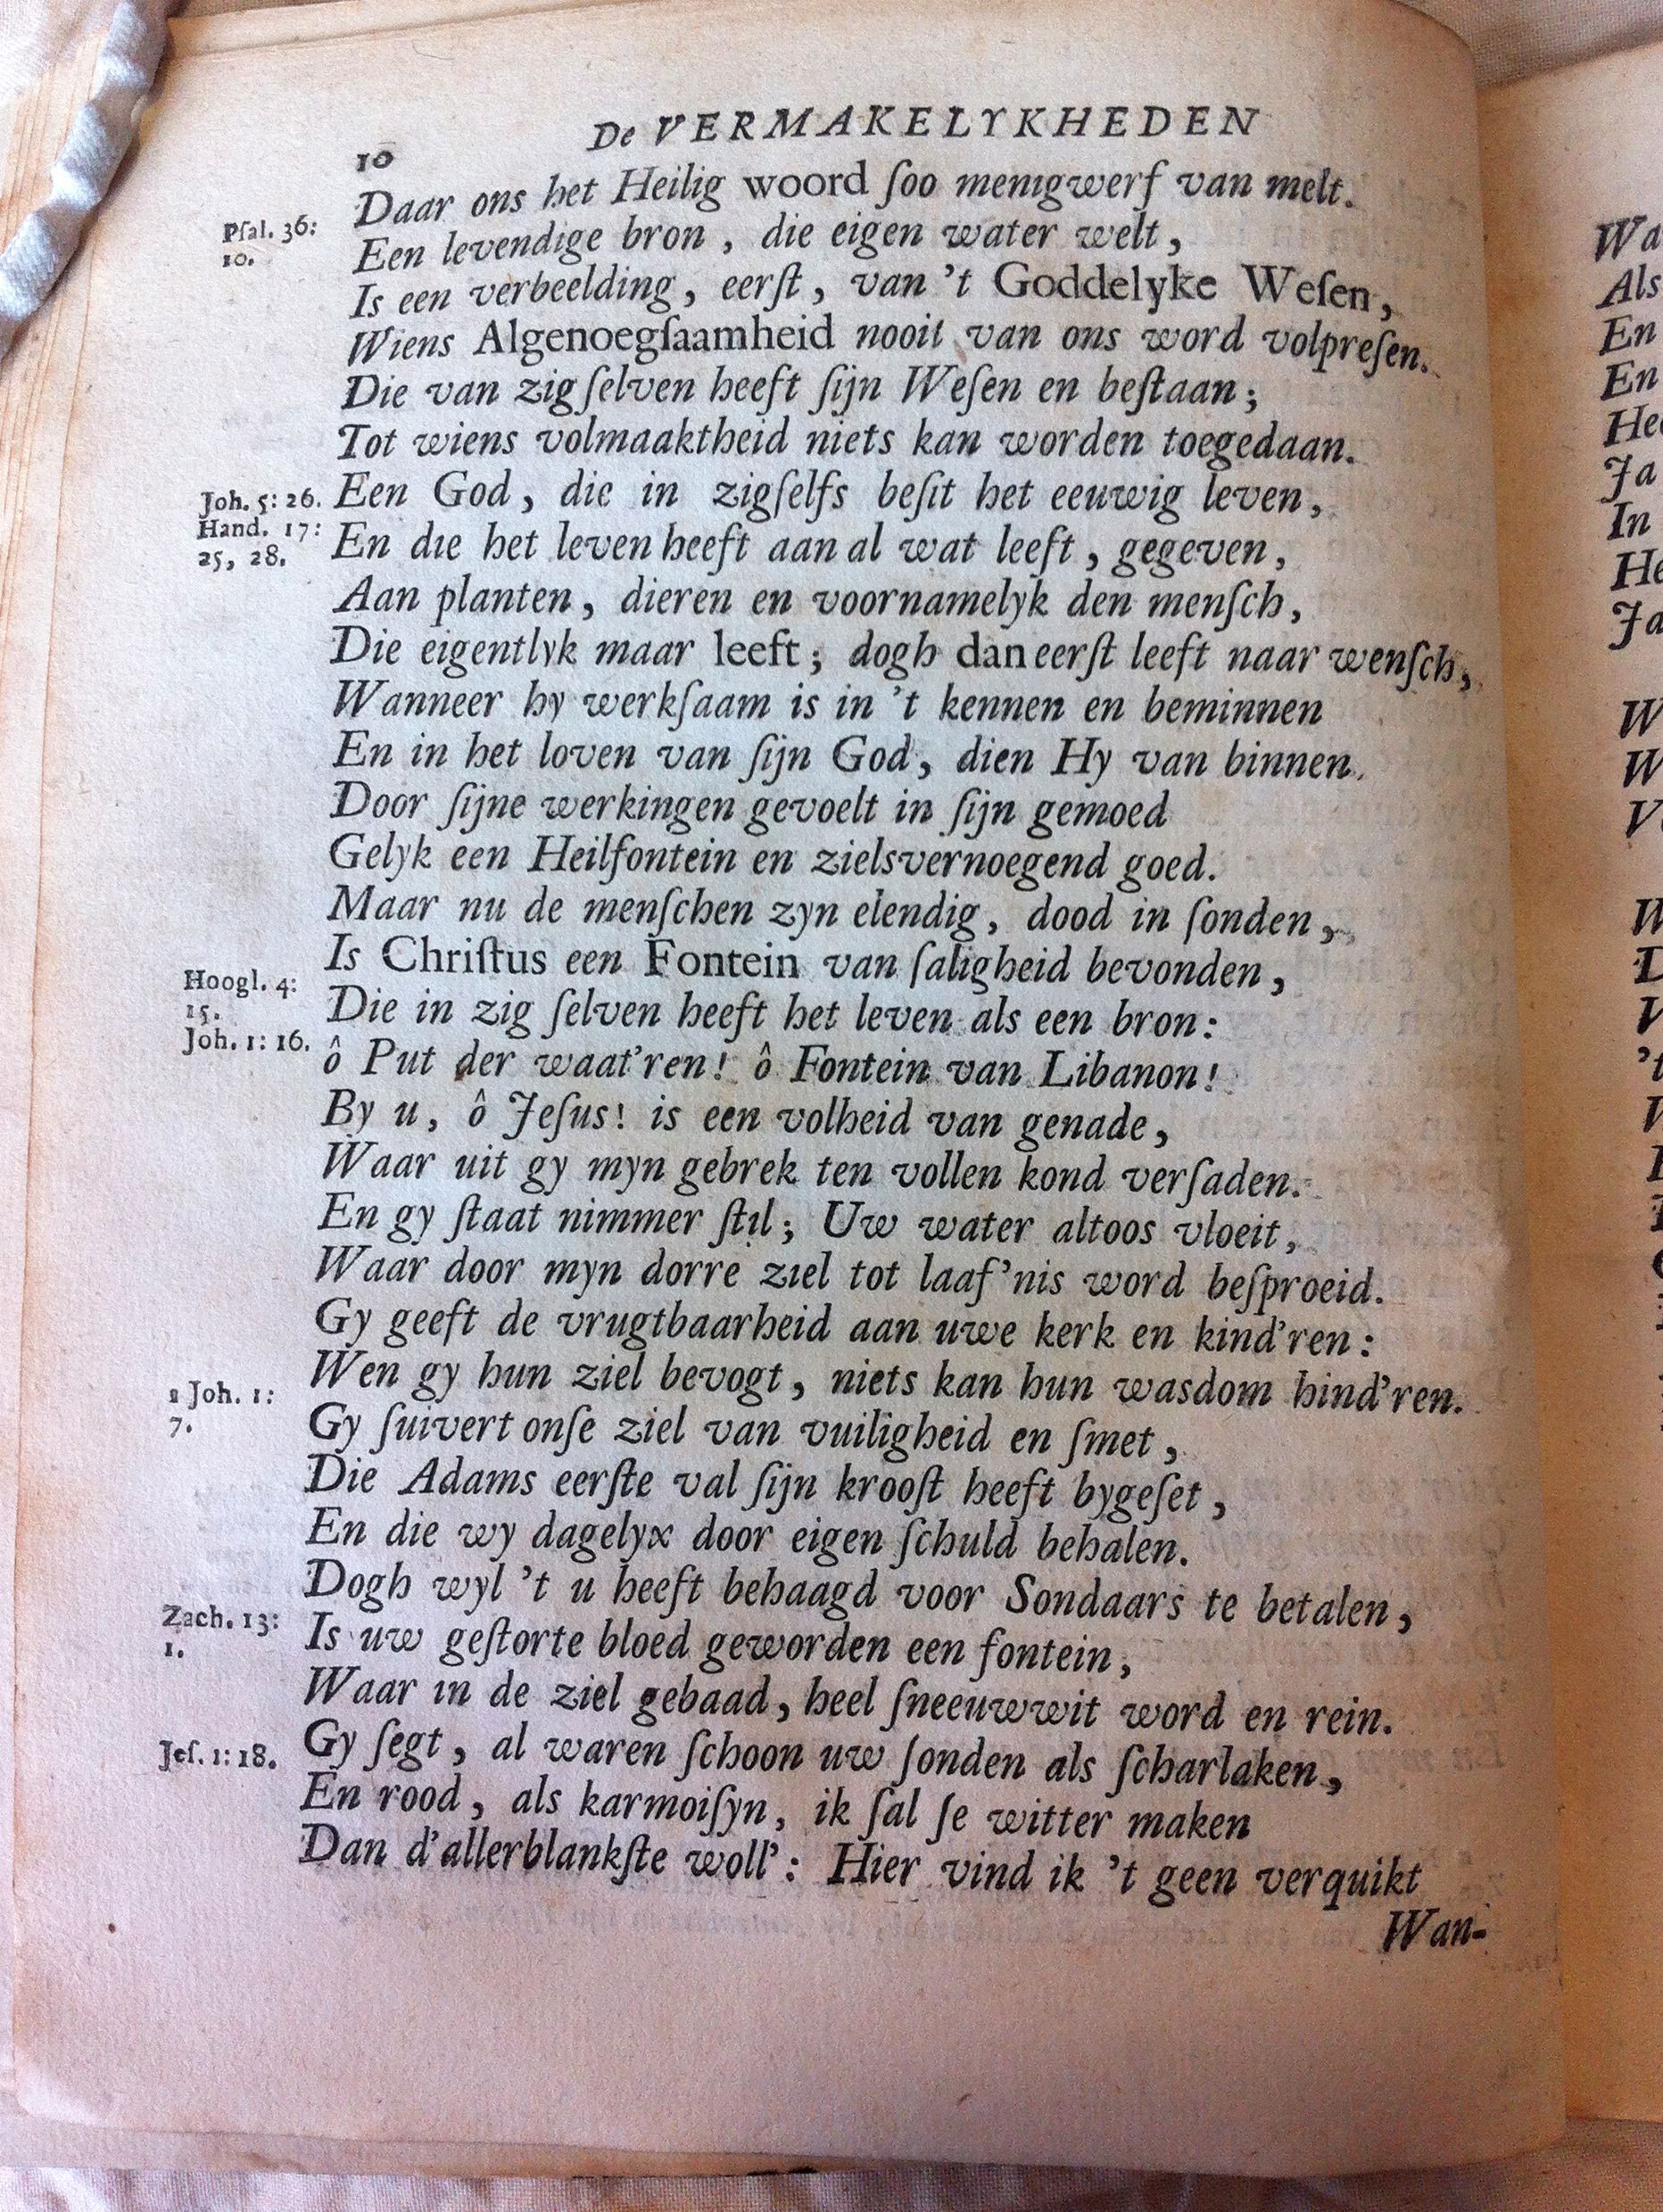 De VERMAKELYKHEDEN
10
Daar ons het Heilig woord ſoo menigwerf van melt.
Pſal. 36:
10.
Een levendige bron, die eigen water welt,
Is een verbeelding, eerſt, van 't Goddelyke Weſen,
Wiens Algenoegſaamheid nooit van ons word volpreſen.
Die van zig ſelven heeft ſijn Weſen en beſtaan;
Tot wiens volmaaktheid niets kan worden toegedaan.
Joh. 5: 26.
Een God, die in zigſelfs beſit het eeuwig leven,
Hand. 17:
25, 28.
En die het leven heeft aan al wat leeft, gegeven,
Aan planten, dieren en voornamelyk den menſch,
Die eigentlyk maar leeft; dogh dan eerſt leeft naar wenſch,
Wanneer hy werkſaam is in 't kennen en beminnen
En in het loven van ſijn God, dien Hy van binnen
Door ſijne werkingen gevoelt in ſijn gemoed
Gelyk een Heilfontein en zielsvernoegend goed.
Maar nu de menſchen zyn elendig, dood in ſonden,
Is Chriſtus een Fontein van ſaligheid bevonden,
Hoogl. 4:
15.
Die in zig ſelven heeft het leven als een bron:
Joh. 1: 16.
ô Put der waat'ren! ô Fontein van Libanon!
By u, ô Jeſus! is een volheid van genade,
Waar uit gy myn gebrek ten vollen kond verſaden.
En gy ſtaat nimmer ſtil; Uw water altoos vloeit,
Waar door myn dorre ziel tot laaf'nis word beſproeid.
Gy geeft de vrugtbaarheid aan uwe kerk en kind'ren:
Wen gy hun ziel bevogt, niets kan hun wasdom hind'ren.
1 Joh. 1:
7.
Gy ſuivert onſe ziel van vuiligheid en ſmet,
Die Adams eerſte val ſijn krooſt heeft bygeſet,
En die wy dagelyx door eigen ſchuld behalen.
Dogh wyl 't u heeft behaagd voor Sondaars te betalen,
Zach. 13:
1.
Is uw geſtorte bloed geworden een fontein,
Waar in de ziel gebaad, heel ſneeuwwit word en rein.
Jeſ. 1: 18.
Gy ſegt, al waren ſchoon uw ſonden als ſcharlaken,
En rood, als karmoiſyn, ik ſal ſe witter maken
Dan d'allerblankſte woll': Hier vind ik 't geen verquikt
Wan-
Wa
Als
En
En
Hee
Ja
In
He
Ja
W
W